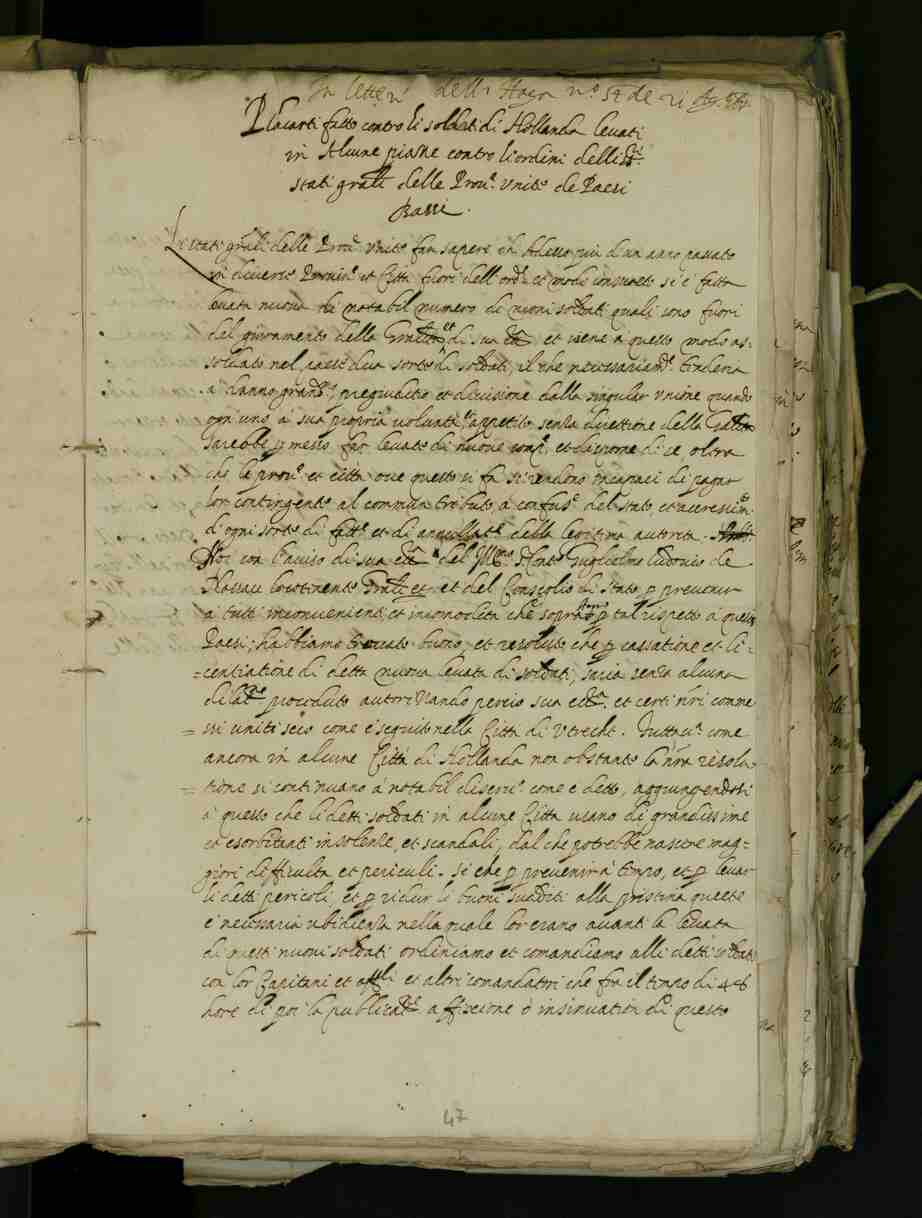 In letter dell' Haya nº 54 de 21 Ag.
Placarti fatto contro li soldati di Hollanda levati
in Alcune piazze contro li ordini delli
stati gñali delle Prou.e Vnite de Paesi
Bassi.
Li stati gñali delle Prou.e Vnite fan sapere ch Adesso piu di un anno passato
in diuerse Prouin.e et Città fuori dell' ord.e et modo consueto si è fatta
leuata nuoua di notabil numero di nuoui soldati quali sono fuori
del giuramento della et di sua et viene a questo modo as-
soldato nel paese due sorte di soldati, il che necessariam.te tenderia
a danno grand.e, pregiuditio et divisione dalla singular Vnione quando
ogn uno à sua propria volunta, et appetito senza direttione della
sarebbe permesso far levate di nuoue et di oltra
che le prou.e et città oue questo si fa si rendono incapaci di pagar
lor contingente al commun tributo a confus.e del stato et
d'ogni sorte di et di annullat.e della legitima autorita.
Noi con l'auiso di sua del Ill.mo Conte Guglielmo Lodouico de
Nassau locotenente et del Conseglio di Stato p prevenir
a tutti inconuenienti et incomodita che sopra p tal rispetto a questi
Paesi; habbiamo trovato buono, et resoluto che p cassatione et li-
=centiatione di detta nuoua levata di soldati, sucia senza alcuna
dilat.e proceduto autorizando perciò sua ecc.a et certi nr̃i comme
= ui uniti seco come è seguito nella Città di Vtrecht. Tuttau.a come
ancora in alcune Città di Hollanda non obstante la nr̃a resolu-
= tione si continuano à notabil diseru.o come è detto, aggiungendosi
a questo che li detti soldati in alcune Città usano di grandissime
et esorbitanti insolenze, et scandali, dal che potrebbe nascere mag=
giori difficulta et periculi. Si che p prevenir à tempo, et p leuar
li detti pericoli, et p ridur li buoni sudditi alla pristina quiete
e necessaria ubidienza nella quale lor erano auanti la levata
di questi nuoui soldati ordiniamo et comandiamo alli detti soldati
con lor Capitani et off.li et altri comandatri che fra il tempo di 48
hore di poi la publicat.e affissione ò insinuation di questo
47